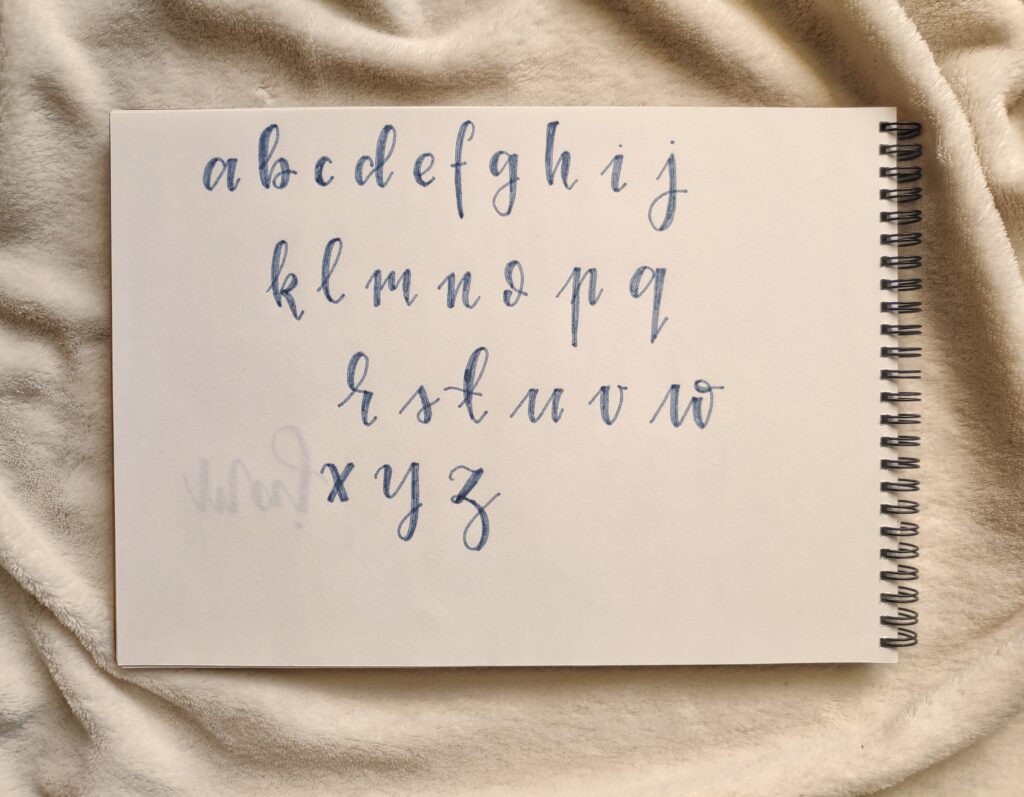 a b c d e f g h i j
k l m n o p q
r s t u v w
x y z